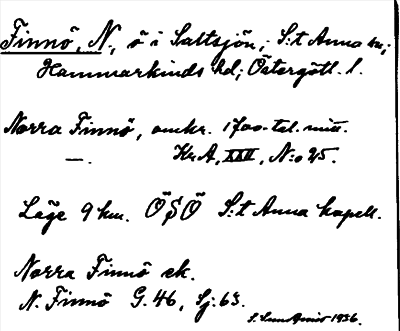 Finnö, N., ö i Saltsjön; S:t Anna sn;
Hammarkinds hd; Östergötl. l.
Norra Finnö, omkr. 1700-tal. mitt.
—. Kr.A, XXII, N:o 25.
Läge 9 km. ÖSÖ S:t Anna kapell.
Norra Finnö ek.
N. Finnö G. 46, Sj: 63.
1936.